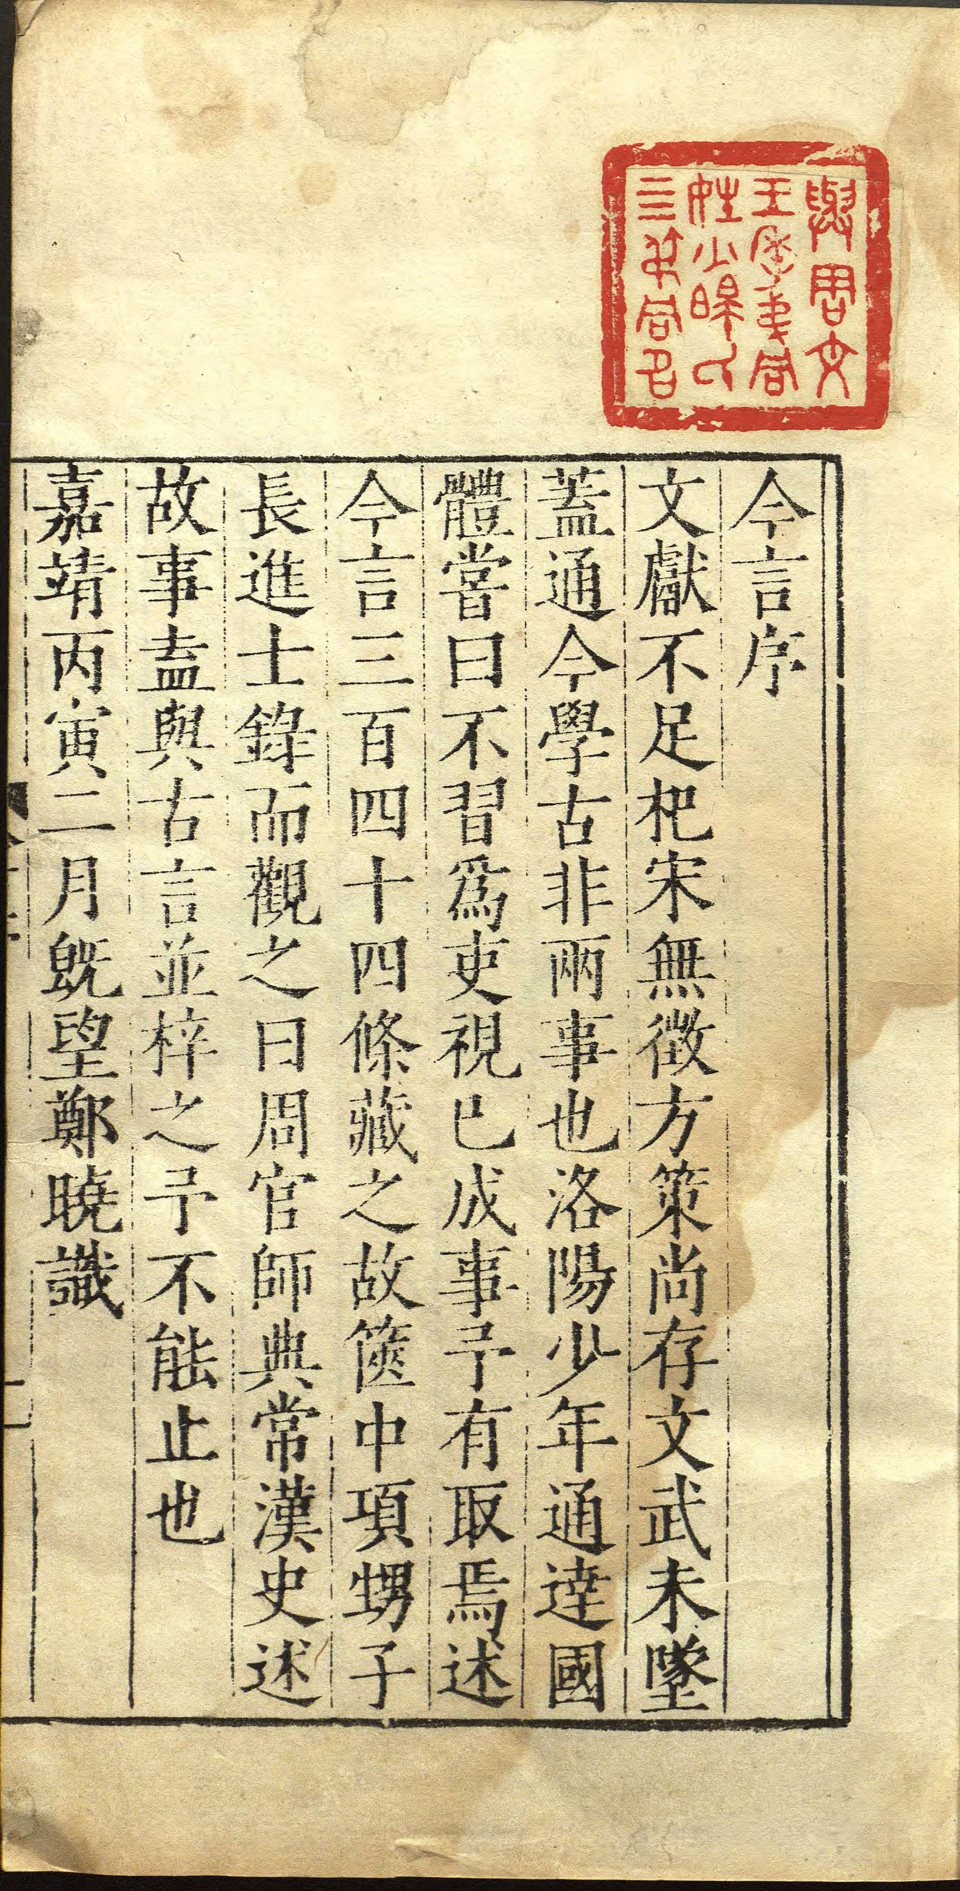 與周文
王同
姓少皞氏
三同名
今言序
文獻不足杞宋無徵方策尚存文武未墜
蓋通今學古非兩事也洛陽少年通達國
體嘗曰不習爲吏視已成事予有取焉述
今言三百四十四條藏之故篋中項甥子
長進士錄而觀之曰周官師典常漢史述
故事盍與古言並梓之予不能止也
嘉靖丙寅二月旣望鄭曉識